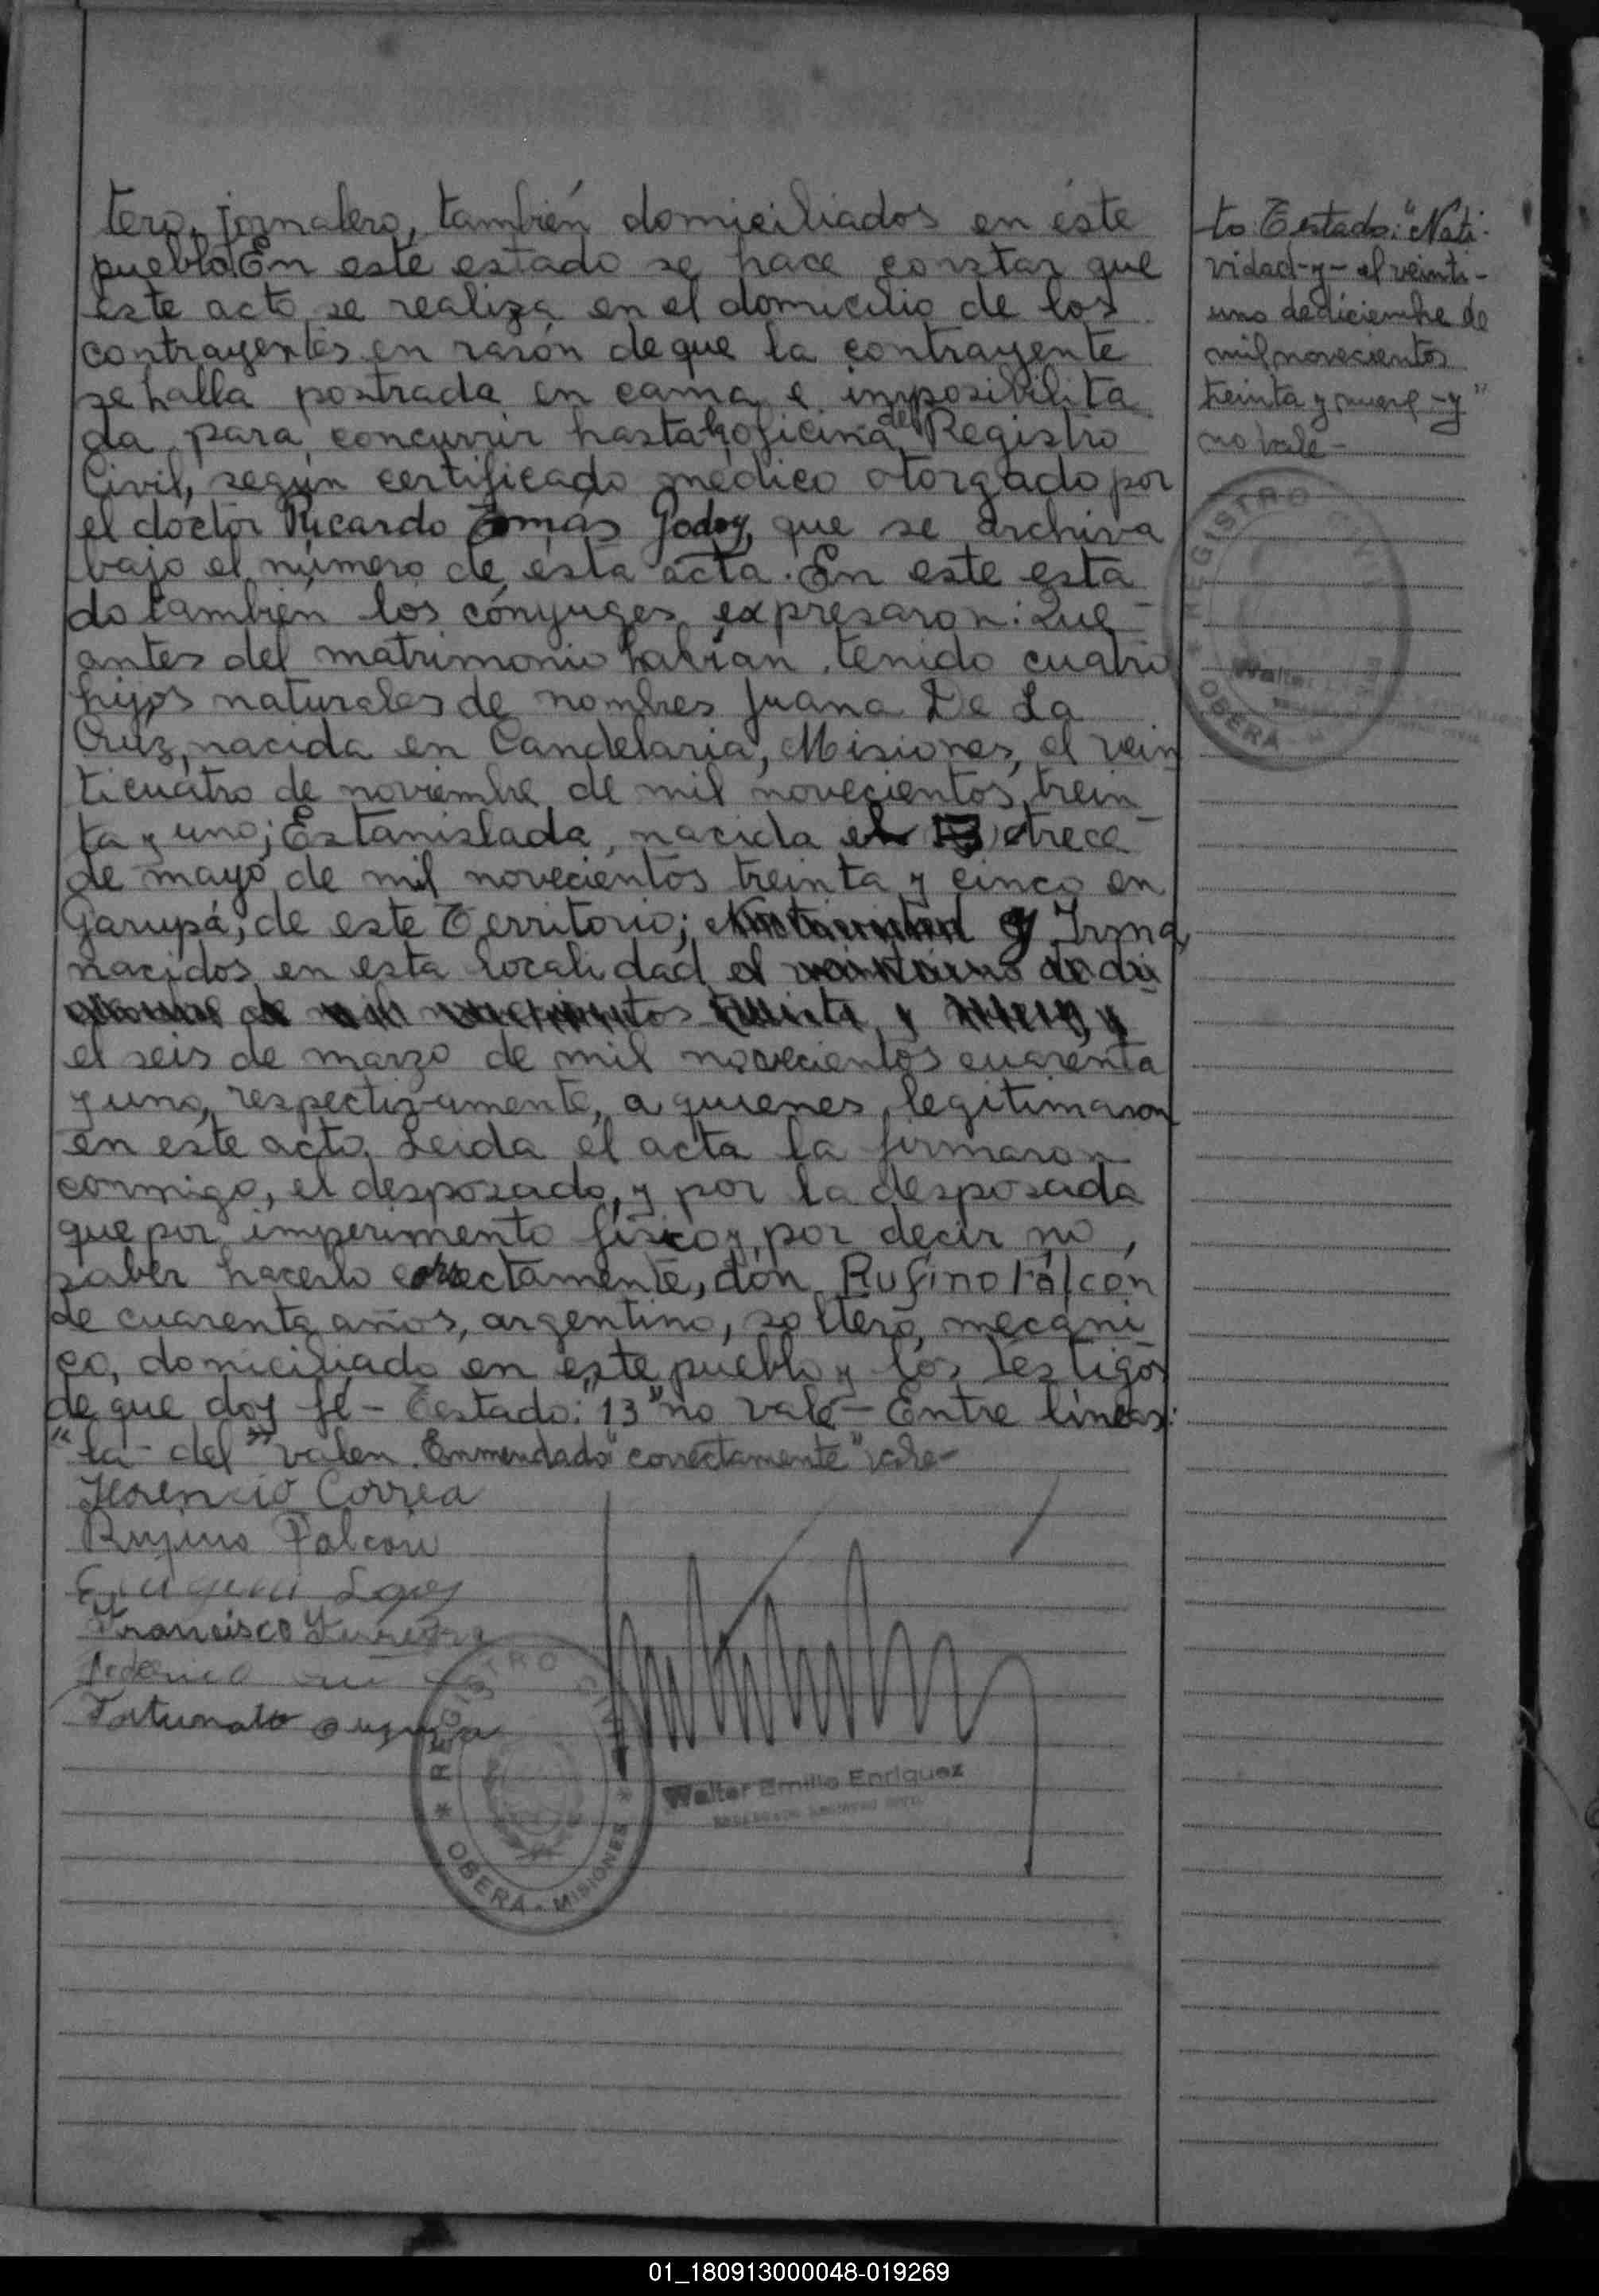 tero, jornalero, también domiciliados en éste
pueblo. En este estado se hace constar que
éste acto se realiza en el domicilio de los
contrayentes en razón de que la contrayente
se halla postrada en cama e imposibilita
da para concurrir hasta la oficina del Registro
Civil, según certificado médico otorgado por
el doctor Ricardo Tomás Godoy, que se archiva
bajo el número de ésta acta. En este esta
do también los cónyuges expresaron: Que
antes del matrimonio habían tenido cuatro
hijos naturales de nombres Juana De La
Cruz, nacida en Candelaria, Misiones, el vein
ticuatro de noviembre de mil novecientos trein
ta y uno; Estanislada, nacida el 13 trece
de mayo de mil novecientos treinta y cinco en
Garupá, de este Territorio; Natividad y Irma,
nacidos en esta localidad el veintiuno de di
ciembre de mil novecientos treinta y nueve, y
el seis de marzo de mil novecientos cuarenta
y uno, respectivamente, a quienes legitimaron
en este acto. Leida el acta la firmaron
conmigo, el desposado, y por la desposada
que por imperimento físico y por decir no
saber hacerlo correctamente, don Rufino Falcón
de cuarenta años, argentino, soltero, mecáni
co, domiciliado en este pueblo y los testigos
de que doy fé - Testado: "13" no vale - Entre lineas:
"la - del" valen. Enmendado "correctamente" vale -
Florencio Correa
Rufino Falcon
Lopez
Francisco
Fortunato
REGISTRO CIVIL
OBERÁ - MISIONES
Walter Emilio Enriquez
ENCARGADO REGISTRO CIVIL
to Testado: "Nati-
vidad - y - el veinti-
uno de diciembre de
mil novecientos
treinta y nueve - y"
no vale -
REGISTRO CIVIL
OBERÁ - M
Walter
01_180913000048-019269